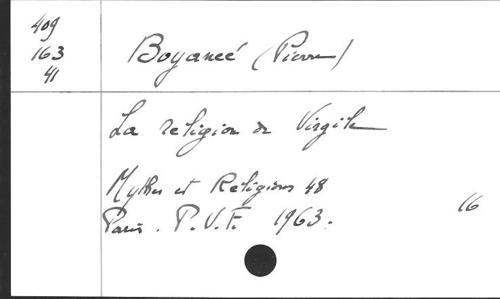 409
163
41
Boyancé (Pierre)
La religion de Virgile
Mythes et Religions 48
Paris. P.U.F. 1963.
16